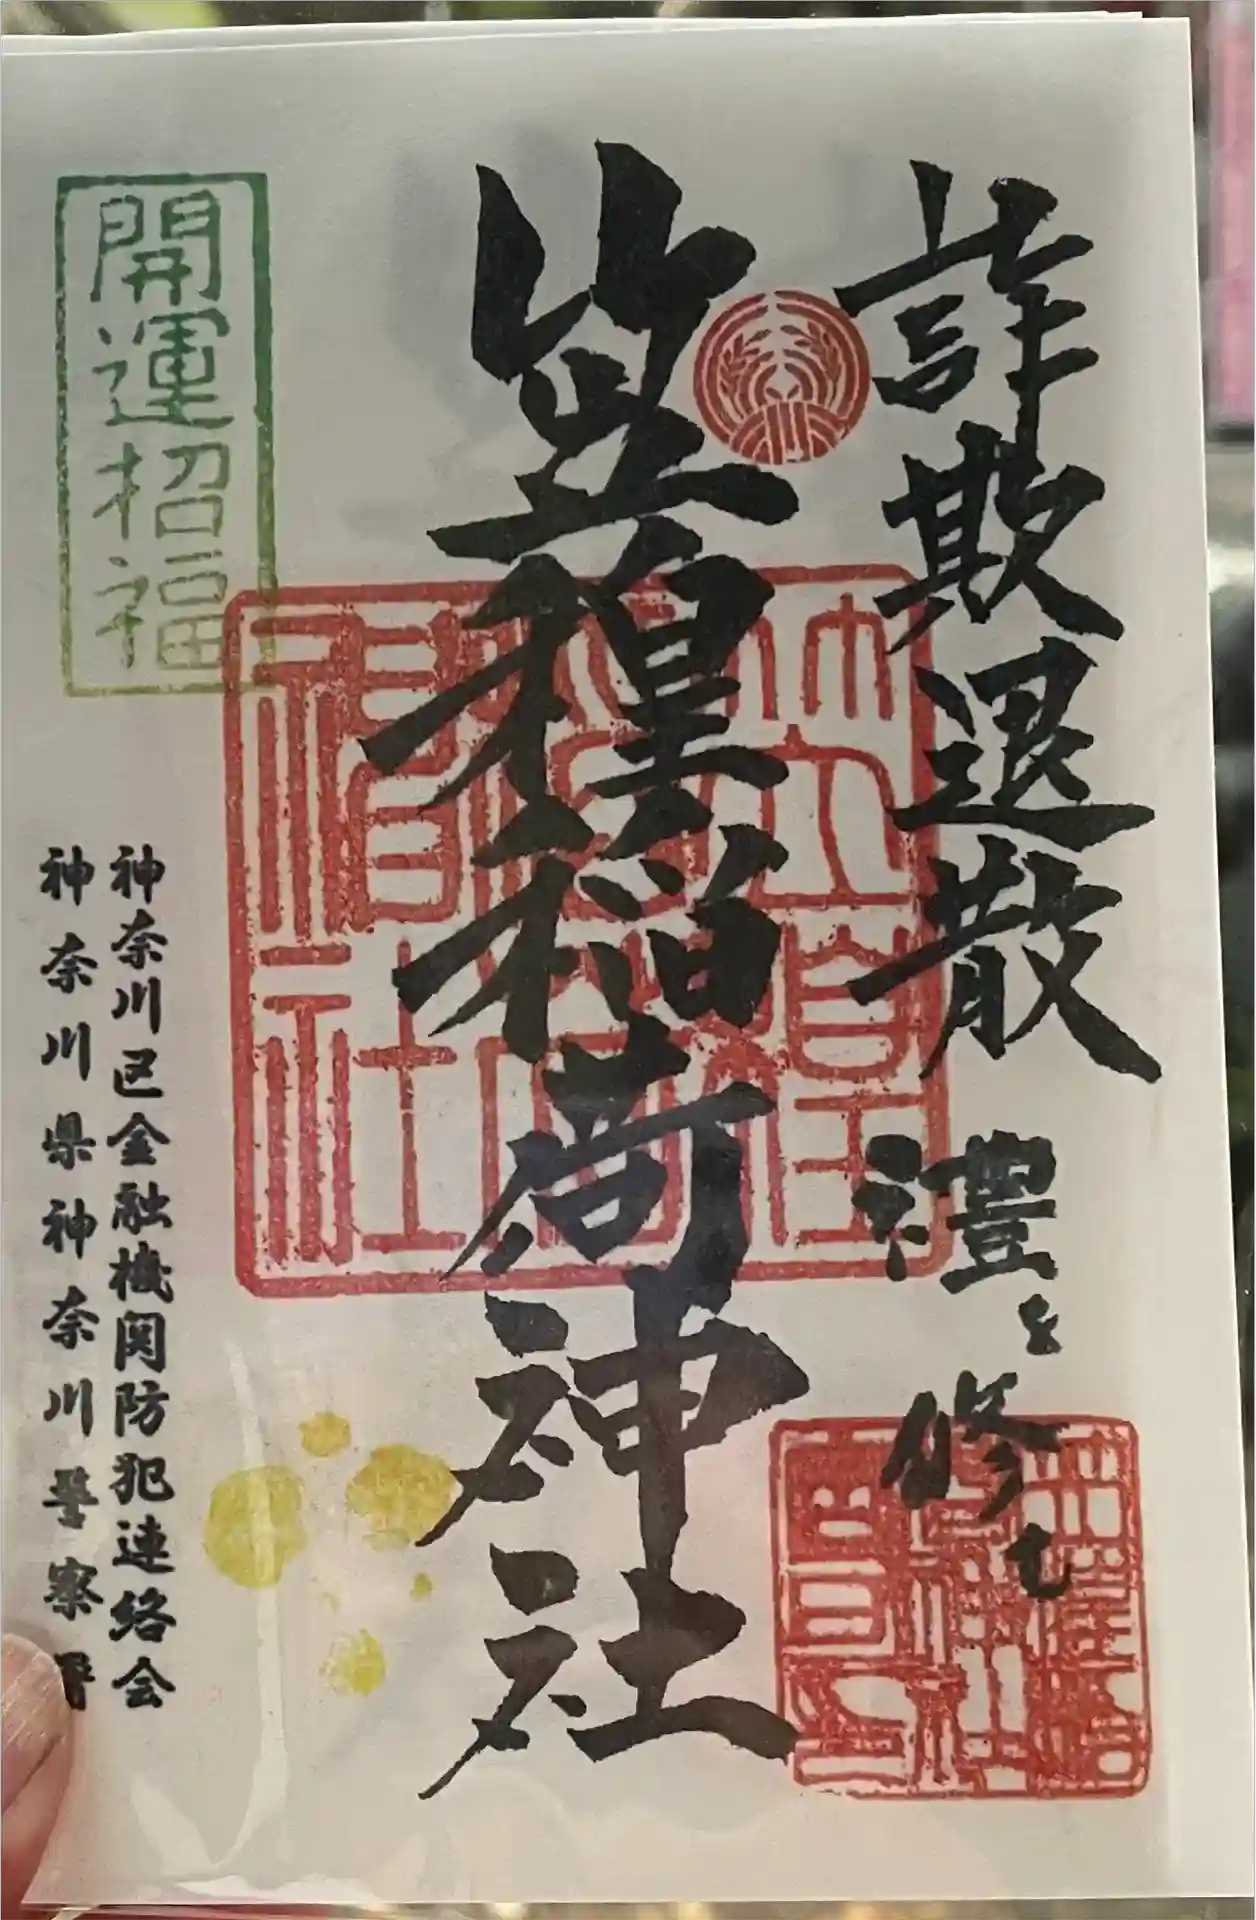 詐欺退散 禮を修む
笠䅣稲荷神社
開運招福
神奈川区金融機関防犯連絡会
神奈川県神奈川警察署